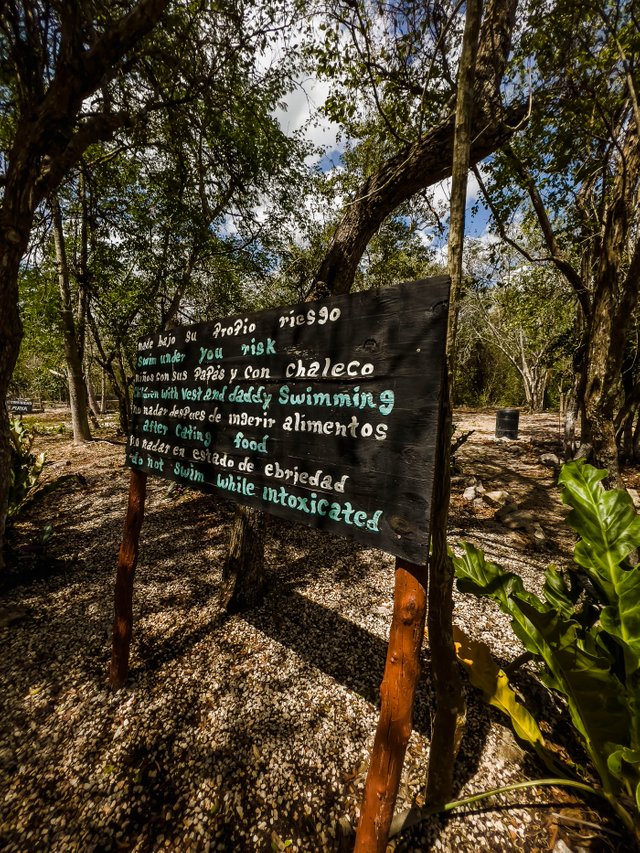 nade bajo su Propio riesgo
Swim under You risk
niños con sus PaPás y con chaleco
Children with Vest and daddy Swimming
no nadar despues de ingerir alimentos
after Eating food
no nadar en estado de ebriedad
do not Swim while intoxicated